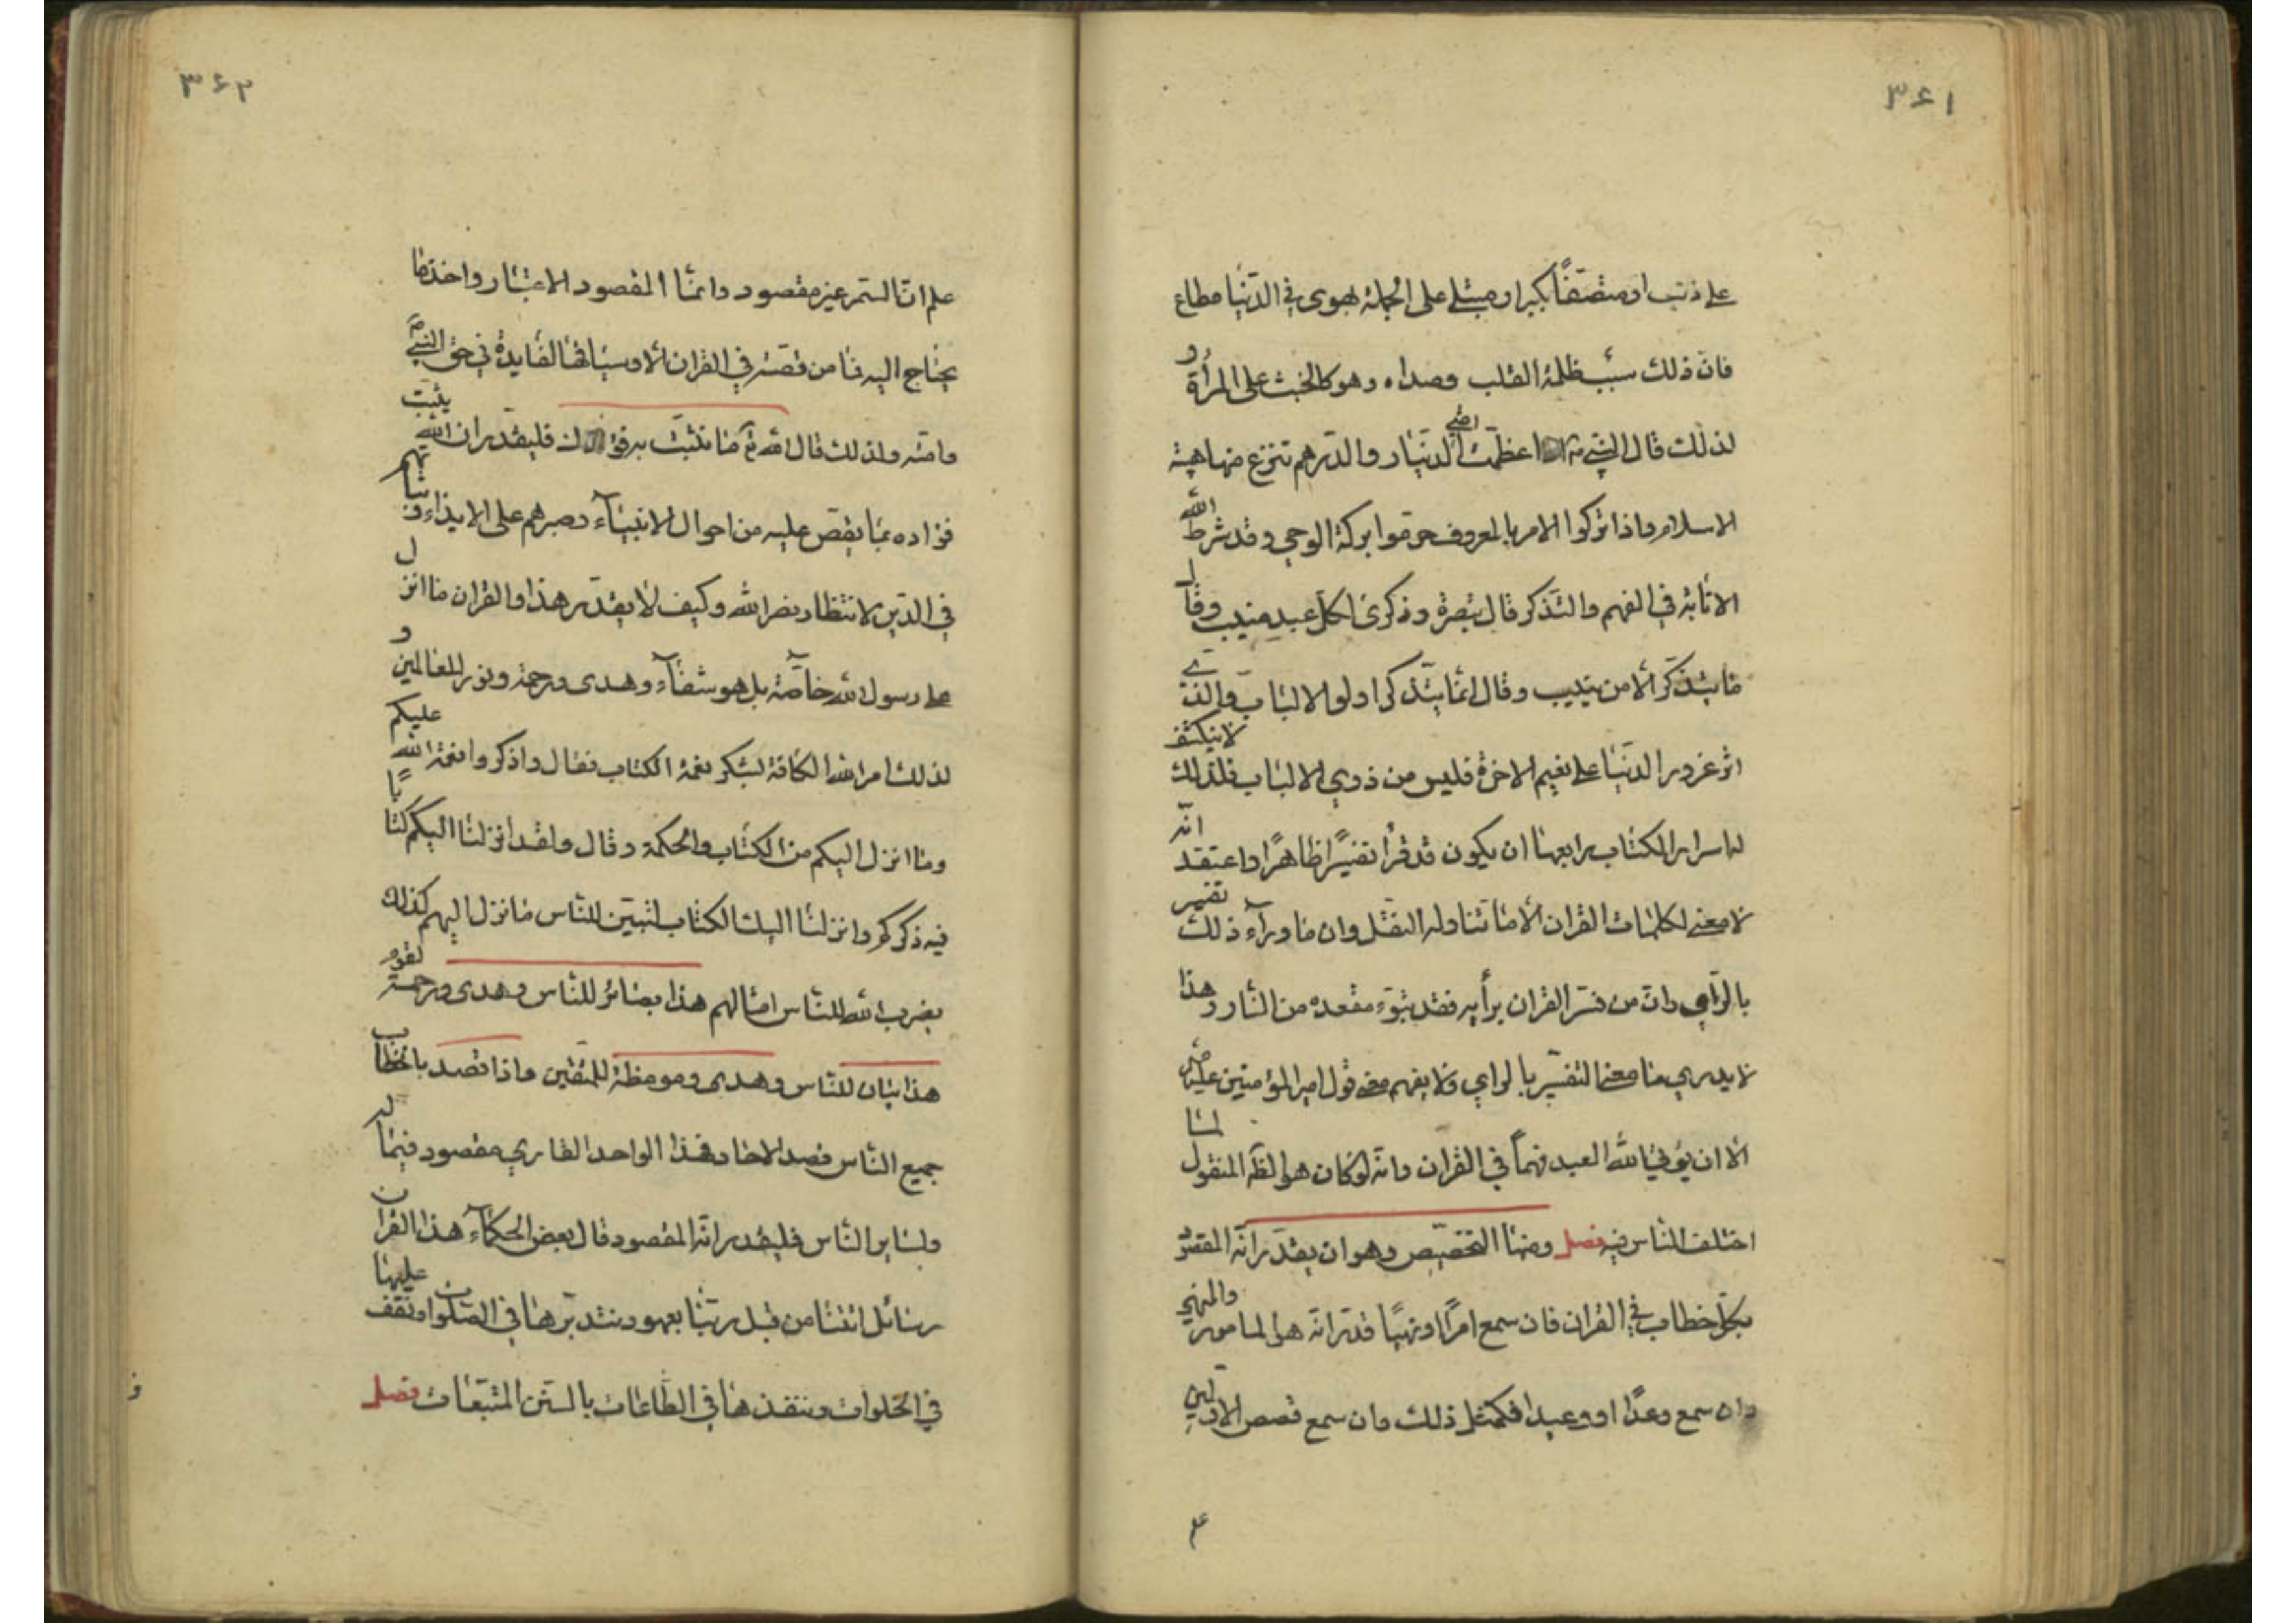 ۳۶۱
على ذنب او متصفا بكبر او مبتلى على الجملة بهوى في الدنيا مطاع
فان ذلك سبب ظلمة القلب وصداه وهو كالخبث على المرأة و
لذلك قال النبي ص اذا عظمت امتي الدينار والدرهم تنزع منها هيبة
الاسلام واذا تركوا الامر بالمعروف حرموا بركة الوحي وقد شرط الله
الانابة في الفهم والتذكر قال تبصرة وذكرى لكل عبد منيب وقال
ما يتذكر الا من ينيب وقال انما يتذكر اولوا الالباب والذي
اثر غرور الدنيا على نعيم الاخرة فليس من ذوي الالباب فلذلك لا ينكشف
له اسرار الكتاب رابعها ان يكون قد قرأ تفسيرا ظاهرا واعتقد انه
لا معنى لكلمات القران الا ما تناوله النقل وان ما وراء ذلك تفسير
بالرأي وان من فسر القران برأيه فقد تبوء مقعده من النار وهذا
لا يدري ما معنى التفسير بالراي ولا يفهم معنى قول امير المؤمنين عليه
الا ان يؤتي الله العبد فهما في القران وانه لو كان هو الظ المنقول لما
اختلف الناس فيه فصل ومنها التخصيص وهو ان يقدر انه المقصود
بكل خطاب في القران فان سمع امرا او نهيا قدر انه هو المامور والمنهي
وان سمع وعدا او وعيدا فكمثل ذلك وان سمع قصص الاولين
۳۶۲
علم ان السمر غير مقصود وانما المقصود الاعتبار واخذ ما
يحتاج اليه فما من قصة في القران الا وسياقها لفايدة في حق النبي ص
وامته ولذلك قال الله تع ما نثبت به فؤادك فليقدر ان الله يثبت
فؤاده بما يقص عليه من احوال الانبياء وصبرهم على الايذاء وثباتهم
في الدين لانتظار نصر الله وكيف لا يقدر هذا والقران ما انزل
على رسول الله خاصة بل هو شفاء وهدى ورحمة ونور للعالمين و
لذلك امر الله الكافة لشكر نعمة الكتاب فقال واذكروا نعمة الله عليكم
وما انزل اليكم من الكتاب والحكمة وقال ولقد انزلنا اليكم كتابا
فيه ذكركم وانزلنا اليك الكتاب لتبين للناس ما نزل اليهم كذلك
يضرب الله للناس امثالهم هذا بصائر للناس وهدى ورحمة لقوم
هذا بيان للناس وهدى وموعظة للمتقين واذا قصد بالخطاب
جميع الناس قصد الاحاد فهذا الواحد القاري مقصود فما له
ولساير الناس فليقدر انه المقصود قال بعض الحكماء هذا القران
رسائل اتتنا من قبل ربنا بعهود نتدبرها في الصلوات ونقف عليها
في الخلوات وننفذها في الطاعات بالسنن المتبعات فصل